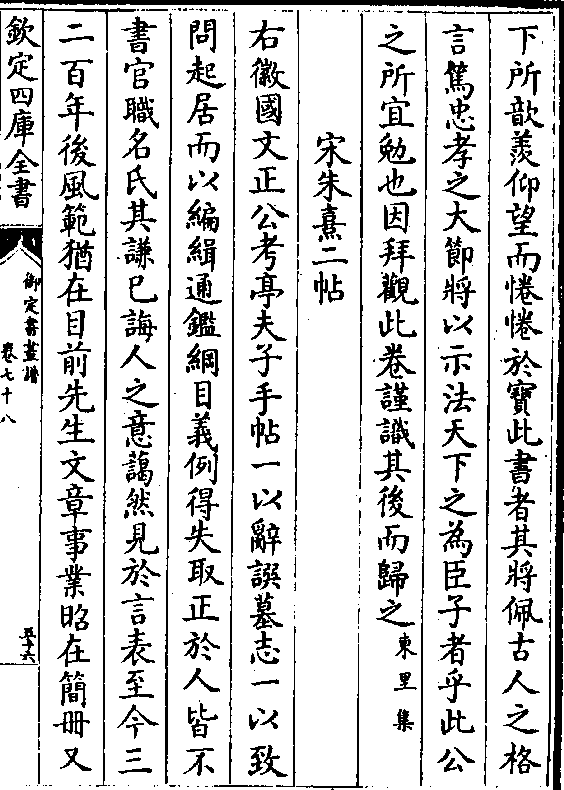 下所歆羨仰望而惓惓於寶此書者其將佩古人之格
言篤忠孝之大節將以示法天下之為臣子者乎此公
之所宜勉也因拜觀此卷謹識其後而歸之東里集
宋朱熹二帖
右徽國文正公考亭夫子手帖一以辭譔墓志一以致
問起居而以編緝通鑑綱目義例得失取正於人皆不
書官職名氏其謙已誨人之意藹然見於言表至今三
二百年後風範猶在目前先生文章事業昭在簡册又
欽定四庫全書
御定書畫譜
卷七十八
五十六